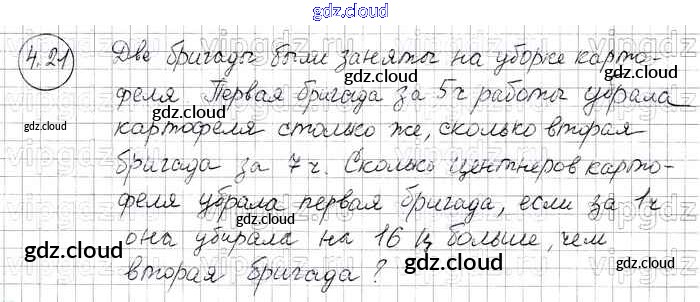 gdz.cloud
4.21 Две бригады были заняты на уборке карто-
gdz.cloud
феля Первая бригада за 5ч работы убрала
gdz.cloud
картофеля столько же, сколько вторая
gdz.cloud
бригада за 7 ч. Сколько центнеров карто-
gdz.cloud
феля убрала первая бригада, если за 1ч
gdz.cloud
она убирала на 16 ц больше, чем
gdz.cloud
вторая бригада?
gdz.cloud